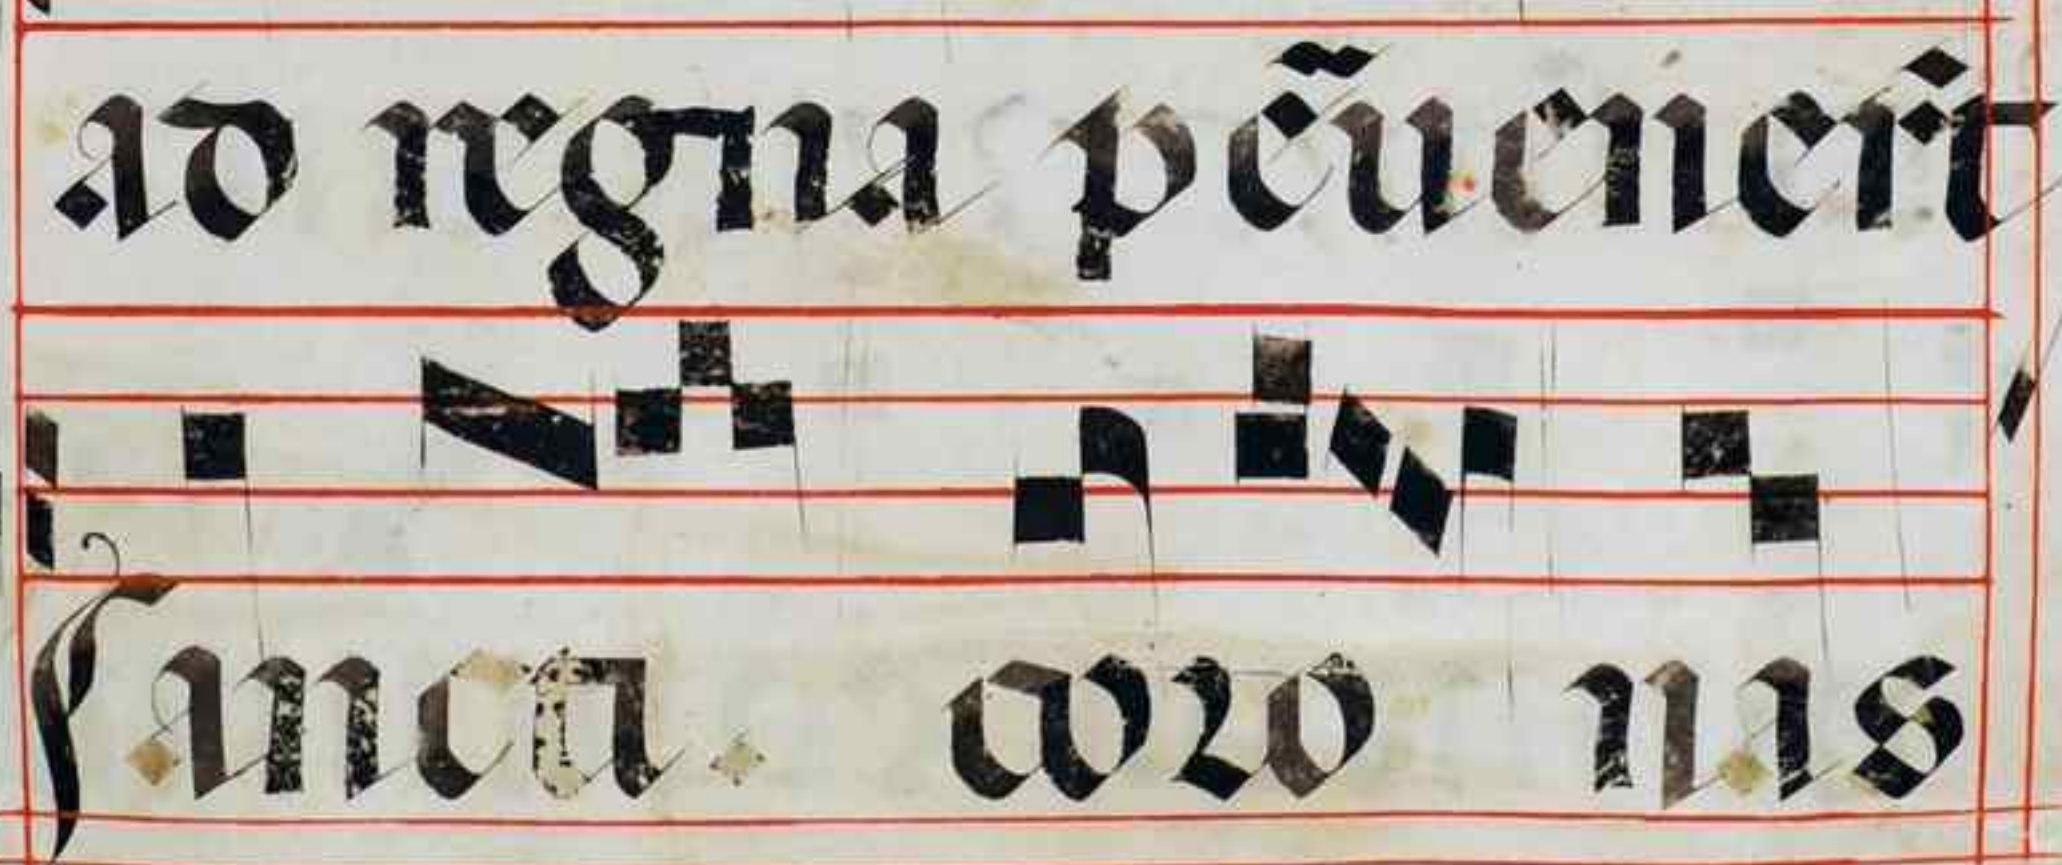 ad regna pẽuenerit
sancta. coro nas